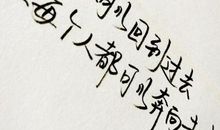 可以回到过去
每个人都可以奔向